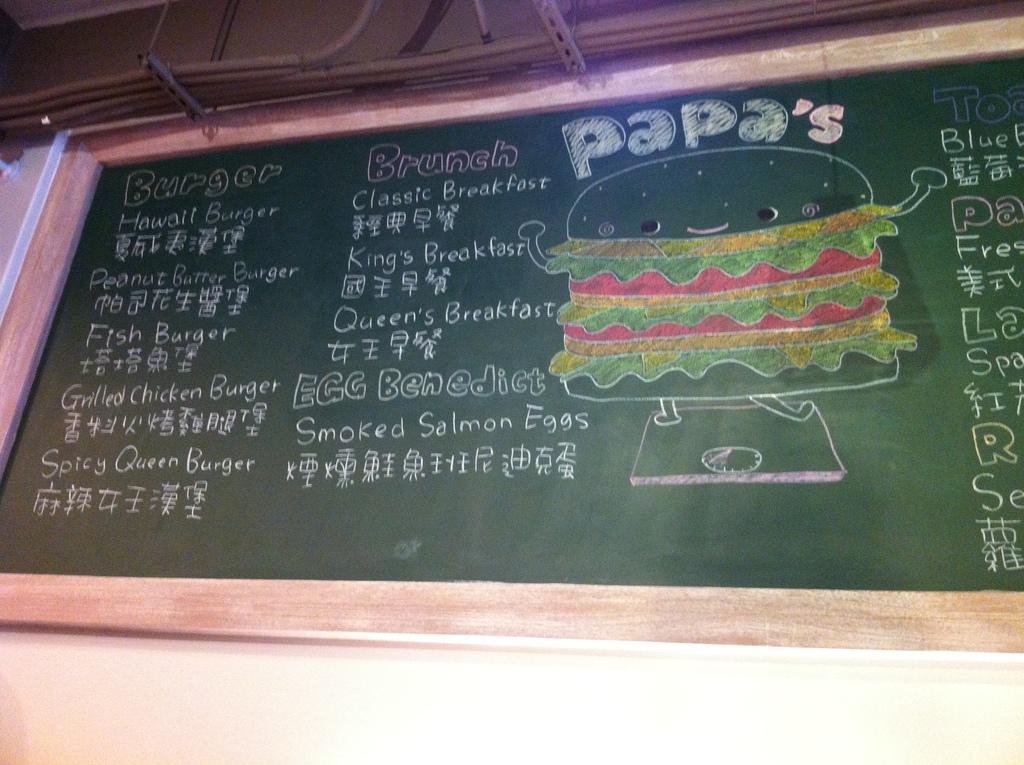 Burger
Hawaii Burger
夏威夷漢堡
Peanut Butter Burger
帕瑪花生醬堡
Fish Burger
塔塔魚堡
Grilled Chicken Burger
香料火烤雞腿堡
Spicy Queen Burger
麻辣女王漢堡
Brunch
Classic Breakfast
經典早餐
King's Breakfast
國王早餐
Queen's Breakfast
女王早餐
EGG Benedict
Smoked Salmon Eggs
煙燻鮭魚班尼迪克蛋
Papa's
Toa
Blue
藍莓
Pa
Fres
美式
La
Spa
紅
R
Se
蘿